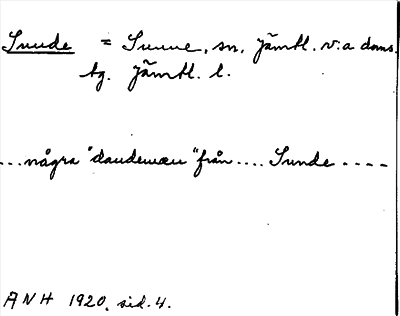 Sunde = Sunne, sn, Jämtl. v. a doms.
tg. Jämtl. l.
...några "daudewæu" från .... Sunde ----
ANH 1920, sid. 4.